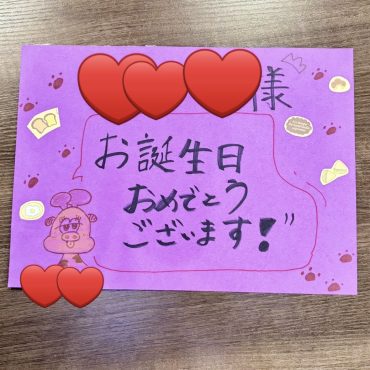 様
お誕生日
おめでとう
ございます!"